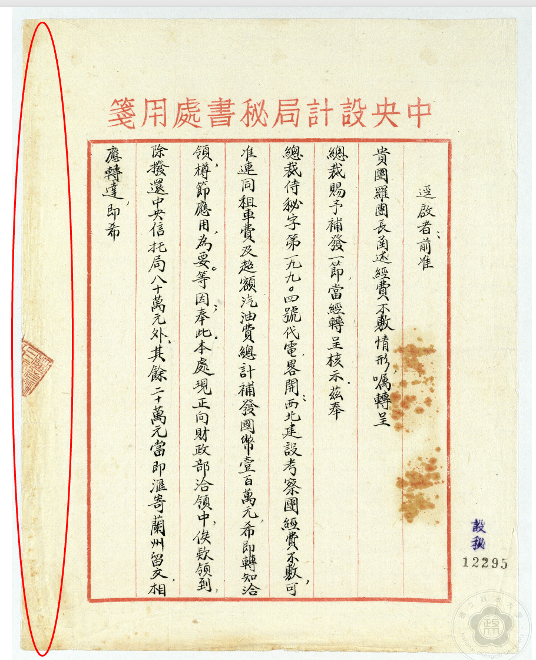 中央設計局秘書處用箋
逕啟者：前准
貴團羅團長函述經費不敷情形，囑轉呈
總裁賜予補發一節，當經轉呈核示。茲奉
總裁侍秘字第一九九〇四號代電畧開：西北建設考察團經費不敷，可
准連同租車費及超額汽油費總計補發國幣壹百萬元，希即轉知洽
領，樽節應用，為妥。等因；奉此。本處現正向財政部洽領中，俟欵領到，
除撥還中央信托局八十萬元外，其餘二十萬元當即滙寄蘭州留交。相
應轉達，即希
設秘
12295